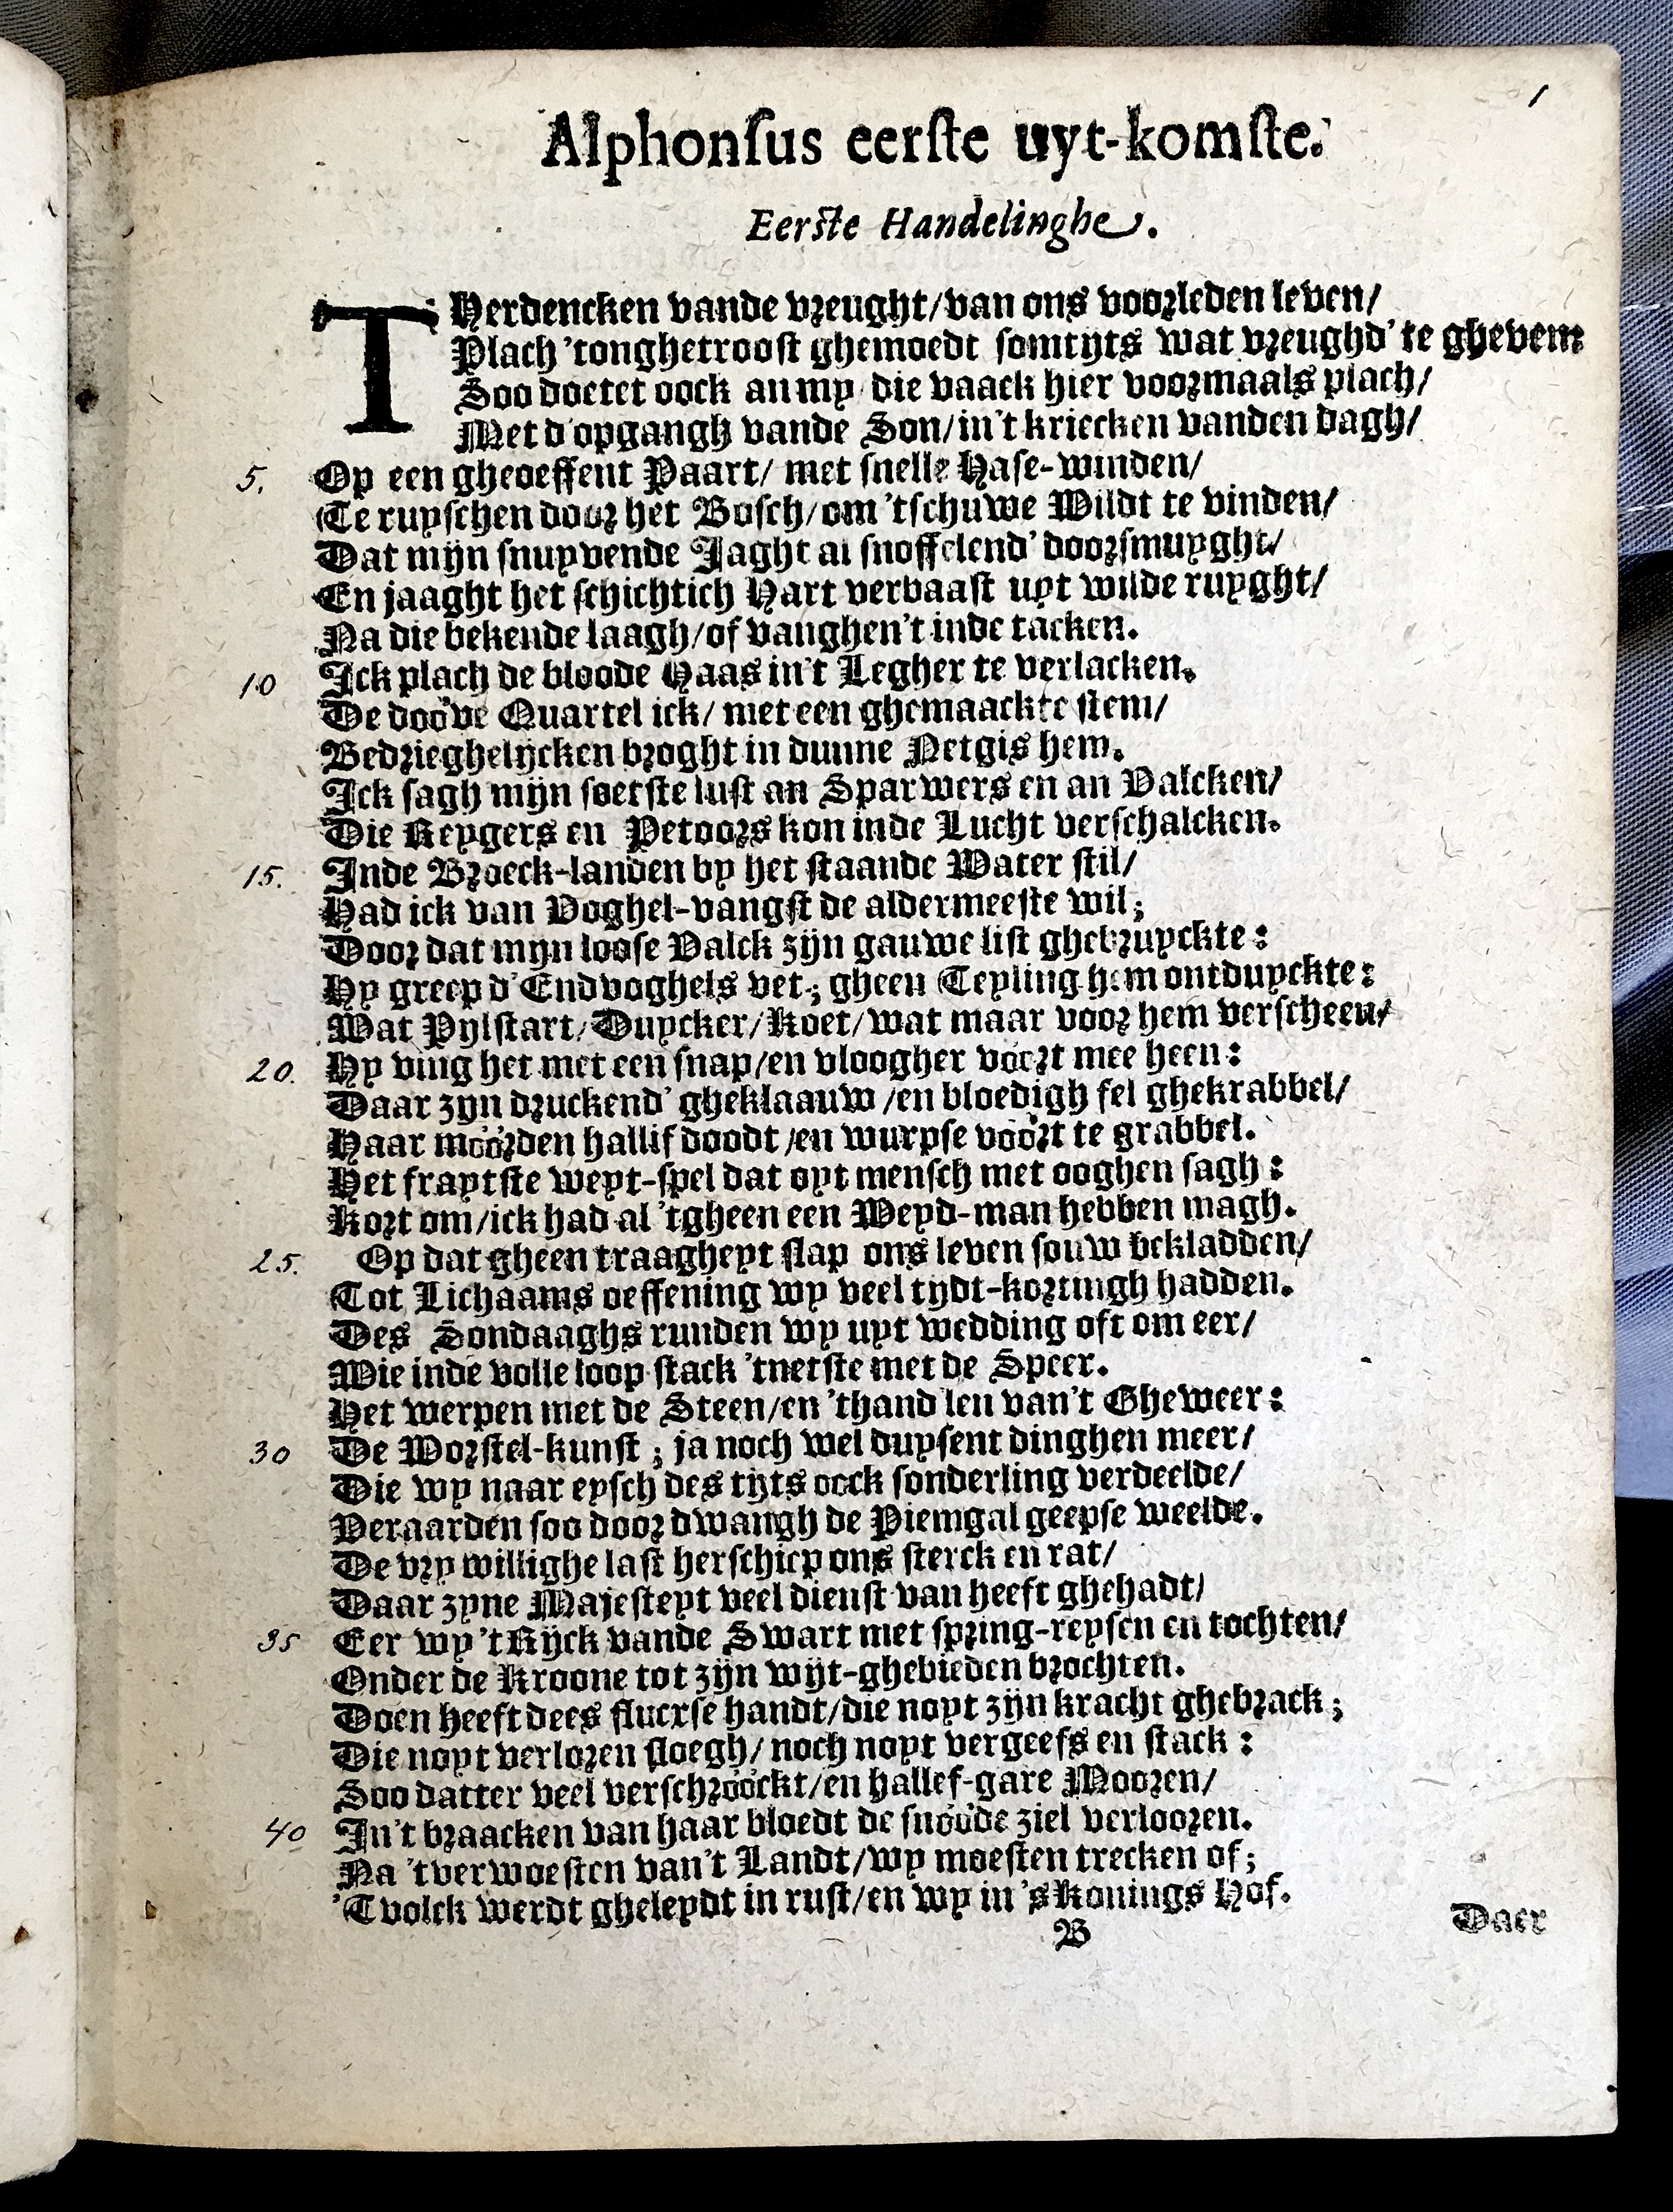 1
Alphonsus eerste uyt-komste.
Eerste Handelinghe.
THerdencken vande vreught/van ons voorleden leven/
Plach 'tonghetroost ghemoedt somtijts wat vreughd' te gheven:
Soo doetet oock an my die vaack hier voormaals plach/
Met d'opgangh vande Son/in't kriecken vanden dagh/
5. Op een gheoeffent Paart/ met snelle Hase-winden/
Te ruyschen door het Bosch/om 'tschuwe Wildt te vinden/
Dat mijn snuyvende Jaght al snoffelend' doorsmuyght/
En jaaght het schichtich Hart verbaast uyt wilde ruyght/
Na die bekende laagh/of vanghen't inde tacken.
10 Ick plach de bloode Haas in't Legher te verlacken.
De doove Quartel ick/ met een ghemaackte stem/
Bedrieghelijcken broght in dunne Netgis hem.
Ick sagh mijn soetste lust an Sparwers en an Valcken/
Die Reygers en Petoors kon inde Lucht verschalcken.
15. Inde Broeck-landen by het staande Water stil/
Had ick van Voghel-vangst de aldermeeste wil;
Door dat mijn loose Valck zijn gauwe list ghebruyckte:
Hy greep d'Endvoghels vet; gheen Teyling hem ontduyckte:
Wat Pylstart/Duycker/Koet/wat maar voor hem verscheen/
20. Hy ving het met een snap/en vloogher voort mee heen:
Daar zyn druckend' gheklaauw/en bloedigh fel ghekrabbel/
Haar moorden hallif doodt/en wurpse voort te grabbel.
Het fraytste weyt-spel dat oyt mensch met ooghen sagh:
Kort om/ick had al 'tgheen een Weyd-man hebben magh.
25. Op dat gheen traagheyt slap ons leven souw bekladden/
Tot Lichaams oeffening wy veel tydt-kortingh hadden.
Des Sondaaghs runden wy uyt wedding oft om eer/
Wie inde volle loop stack 'tnetste met de Speer.
Het werpen met de Steen/en 'thand'len van't Gheweer:
30 De Worstel-kunst; ja noch wel duysent dinghen meer/
Die wy naar eysch des tijts oock sonderling verdeelde/
Veraarden soo door dwangh de Piemgal geepse weelde.
De vry willighe last herschiep ons sterck en rat/
Daar zyne Majesteyt veel dienst van heeft ghehadt/
35 Eer wy 't Rijck vande Swart met spring-reysen en tochten/
Onder de Kroone tot zijn wijt-ghebieden brochten.
Doen heeft dees fluxse handt/die noyt zijn kracht ghebrack;
Die noyt verloren sloegh/noch noyt vergeefs en stack:
Soo datter veel verschroockt/en hallef-gare Mooren/
40 In't braacken van haar bloedt de snoode ziel verlooren.
Na 'tverwoesten van't Landt/wy moesten trecken of;
'Tvolck werdt gheleydt in rust/en wy in 's Konings Hof.
B Daer